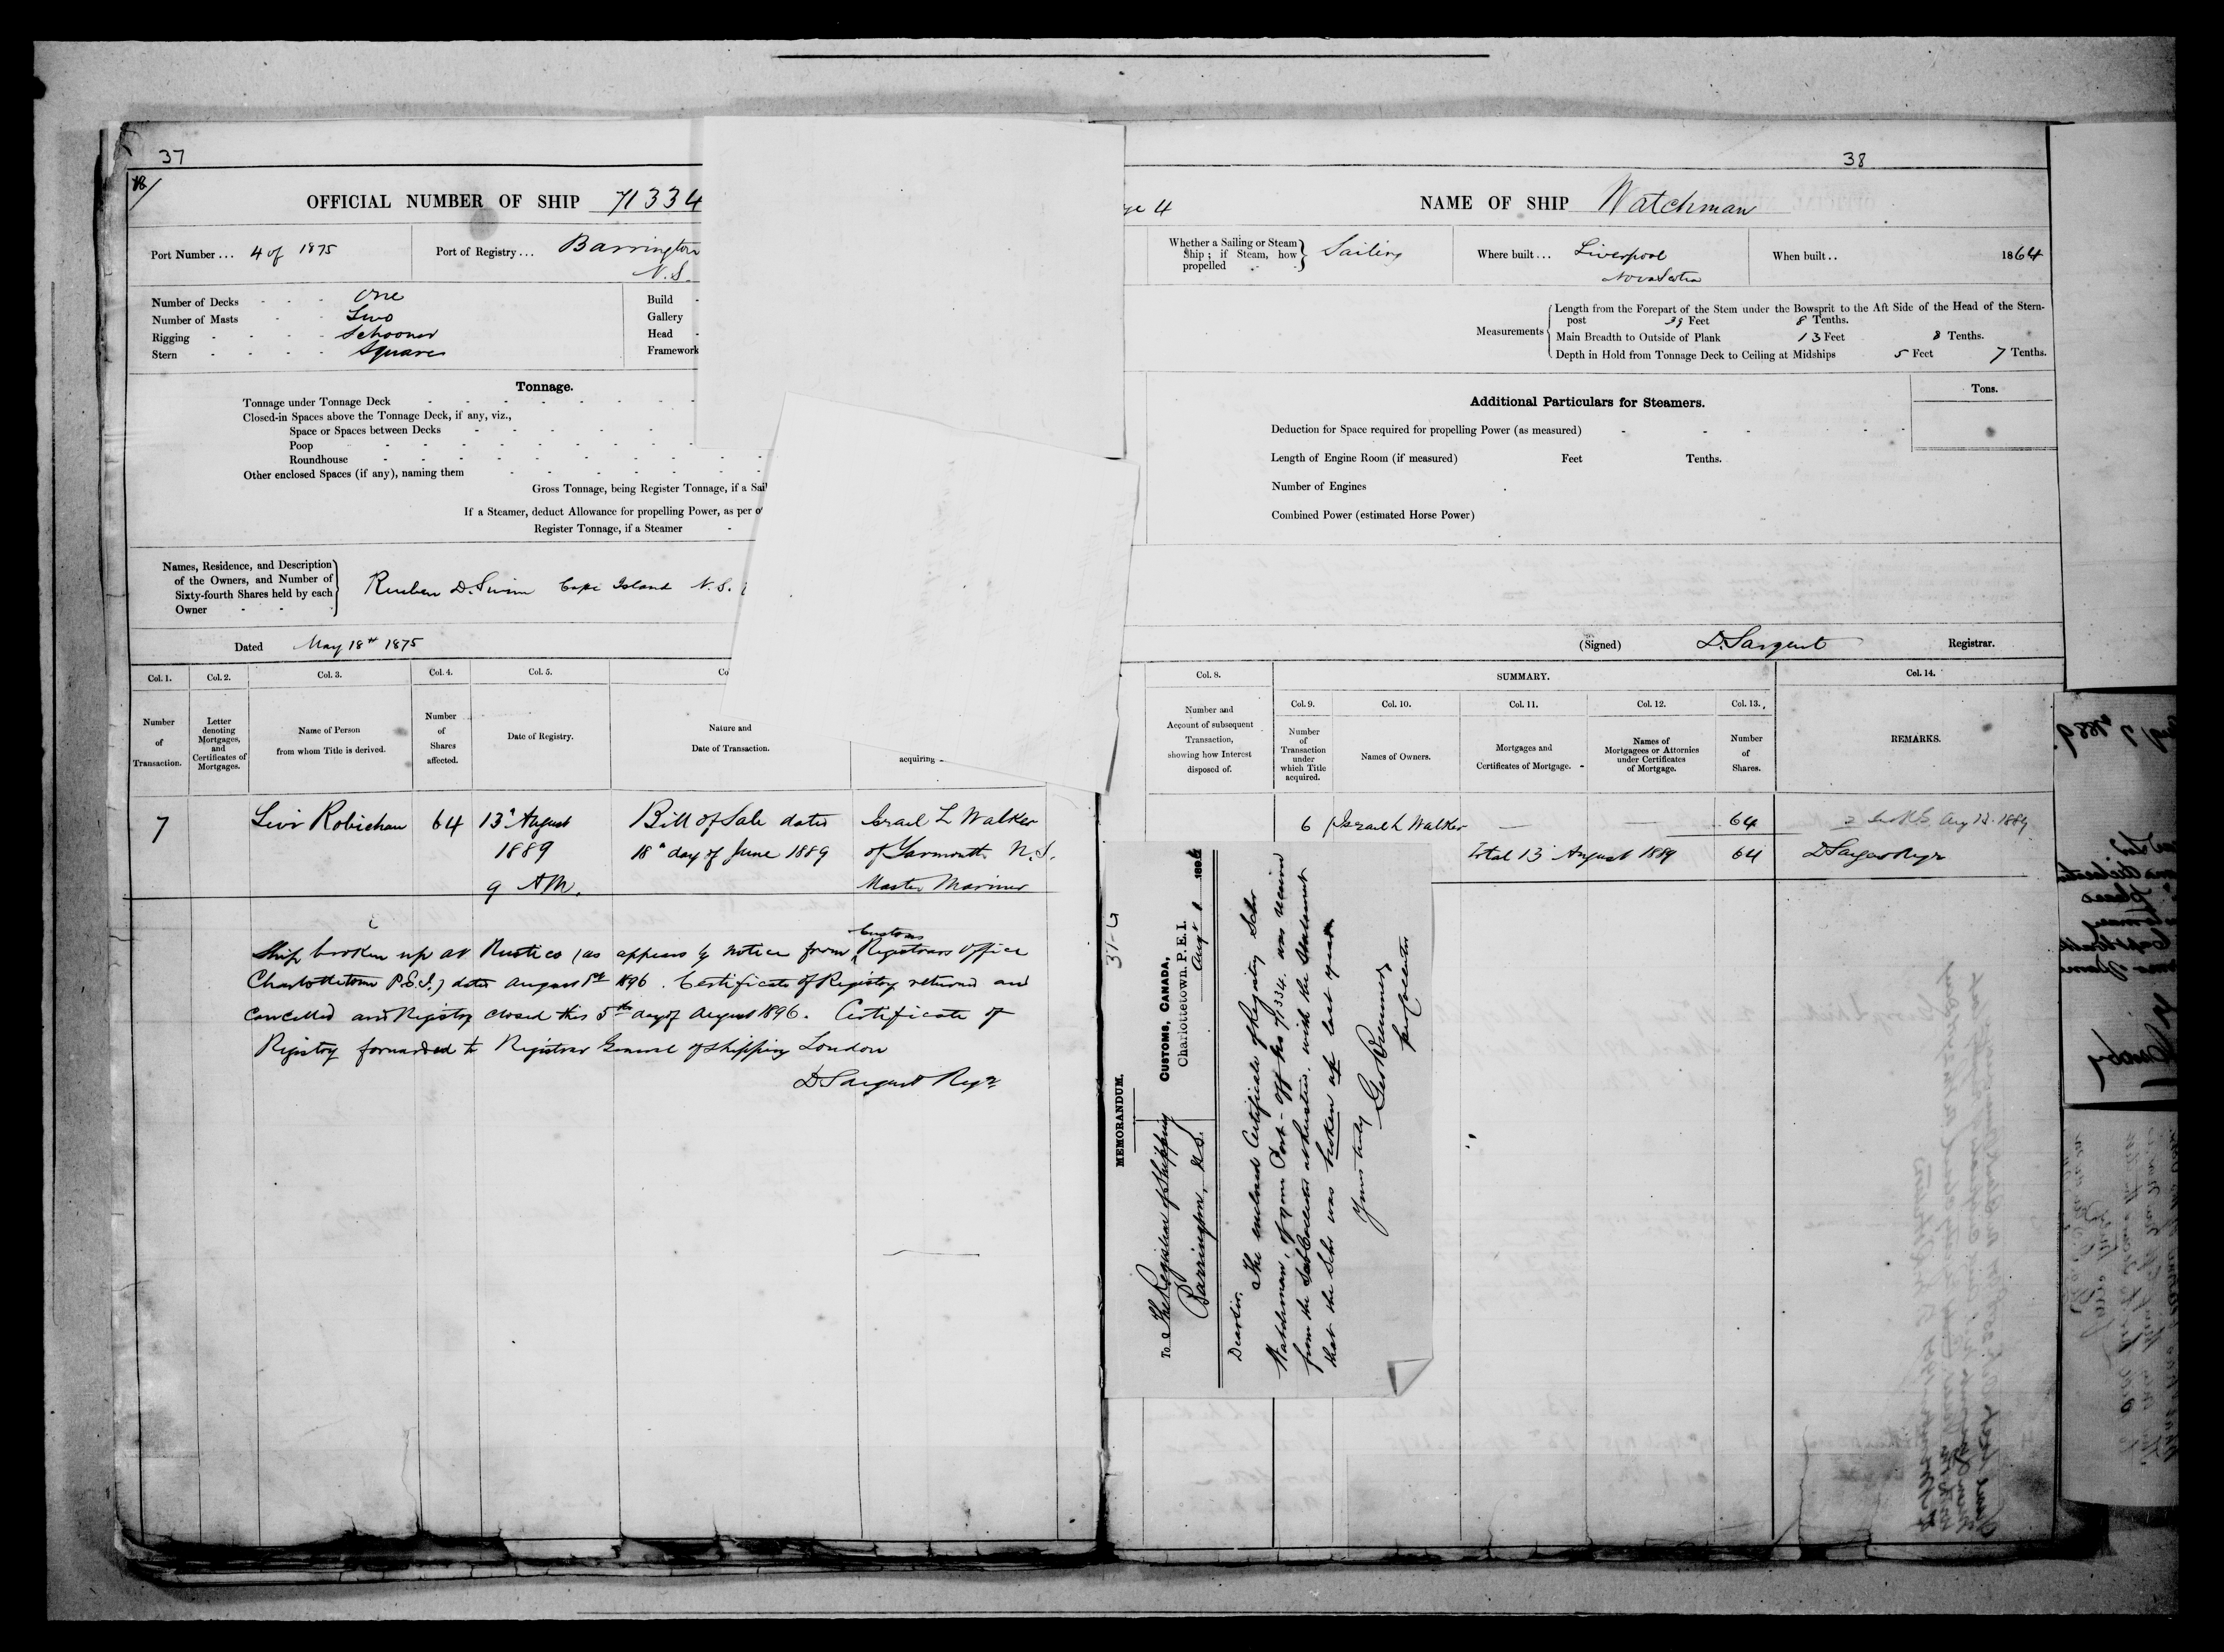 37
OFFICIAL NUMBER OF SHIP 71334
Port Number... 4 of 1875
Port of Registry... Barrington
N.S.
Number of Decks - - - One
Number of Masts - - - Two
Rigging - - - - Schooner
Stern - - - - Square
Build -
Gallery
Head -
Framework
Tonnage.
Tonnage under Tonnage Deck
Closed-in Spaces above the Tonnage Deck, if any, viz.,
Space or Spaces between Decks
Poop
Roundhouse
Other enclosed Spaces (if any), naming them
Gross Tonnage, being Register Tonnage, if a Sail
If a Steamer, deduct Allowance for propelling Power, as per o
Register Tonnage, if a Steamer
Names, Residence, and Description
of the Owners, and Number of
Sixty-fourth Shares held by each
Owner
Reuben D. Swim Cape Island N.S.
Dated May 18th 1875
Col. 1. Col. 2. Col. 3. Col. 4. Col. 5. Co
Number of Transaction.
Letter denoting Mortgages, and Certificates of Mortgages.
Name of Person from whom Title is derived.
Number of Shares affected.
Date of Registry.
Nature and Date of Transaction.
acquiring
7 Levi Robichau 64 13th August Bill of Sale dated Israel L Walker
1889 18th day of June 1889 of Yarmouth N.S.
9 AM. Master Mariner
Customs
Ship broken up at Rustico (as appears by notice from Registrars Office
Charlottetown P.E.I.) dated August 1st 1896. Certificate of Registry returned and
cancelled and Registry closed this 5th day of August 1896. Certificate of
Registry forwarded to Registrar General of Shipping London
D Sargent Regr
38
ge 4
NAME OF SHIP Watchman
Whether a Sailing or Steam
Ship; if Steam, how
propelled
Sailing
Where built... Liverpool
Nova Scotia
When built.. 1864
Measurements
Length from the Forepart of the Stem under the Bowsprit to the Aft Side of the Head of the Stern-
post 39 Feet 8 Tenths.
Main Breadth to Outside of Plank 13 Feet 8 Tenths.
Depth in Hold from Tonnage Deck to Ceiling at Midships 5 Feet 7 Tenths.
Additional Particulars for Steamers.
Tons.
Deduction for Space required for propelling Power (as measured)
Length of Engine Room (if measured) Feet Tenths.
Number of Engines
Combined Power (estimated Horse Power)
(Signed) D. Sargent Registrar.
Col. 8. SUMMARY. Col. 14.
Number and Account of subsequent Transaction, showing how Interest disposed of.
Col. 9. Col. 10. Col. 11. Col. 12. Col. 13.
Number of Transaction under which Title acquired.
Names of Owners.
Mortgages and Certificates of Mortgage.
Names of Mortgagees or Attornies under Certificates of Mortgage.
Number of Shares.
REMARKS.
6 Israel L Walker — — 64 Aug 13. 1889
Total 13 August 1889 64 D Sargent Regr
MEMORANDUM.
CUSTOMS, CANADA,
Charlottetown, P.E.I.
Augt 1 1896
To The Registrar of Shipping
Barrington, N.S.
Dear Sir,
The enclosed Certificate of Registry Schr
Watchman, of your Port - Off No 71334. was received
from the Sub Collector at Rustico, with the statement
that the Schr was broken up last year.
Yours truly